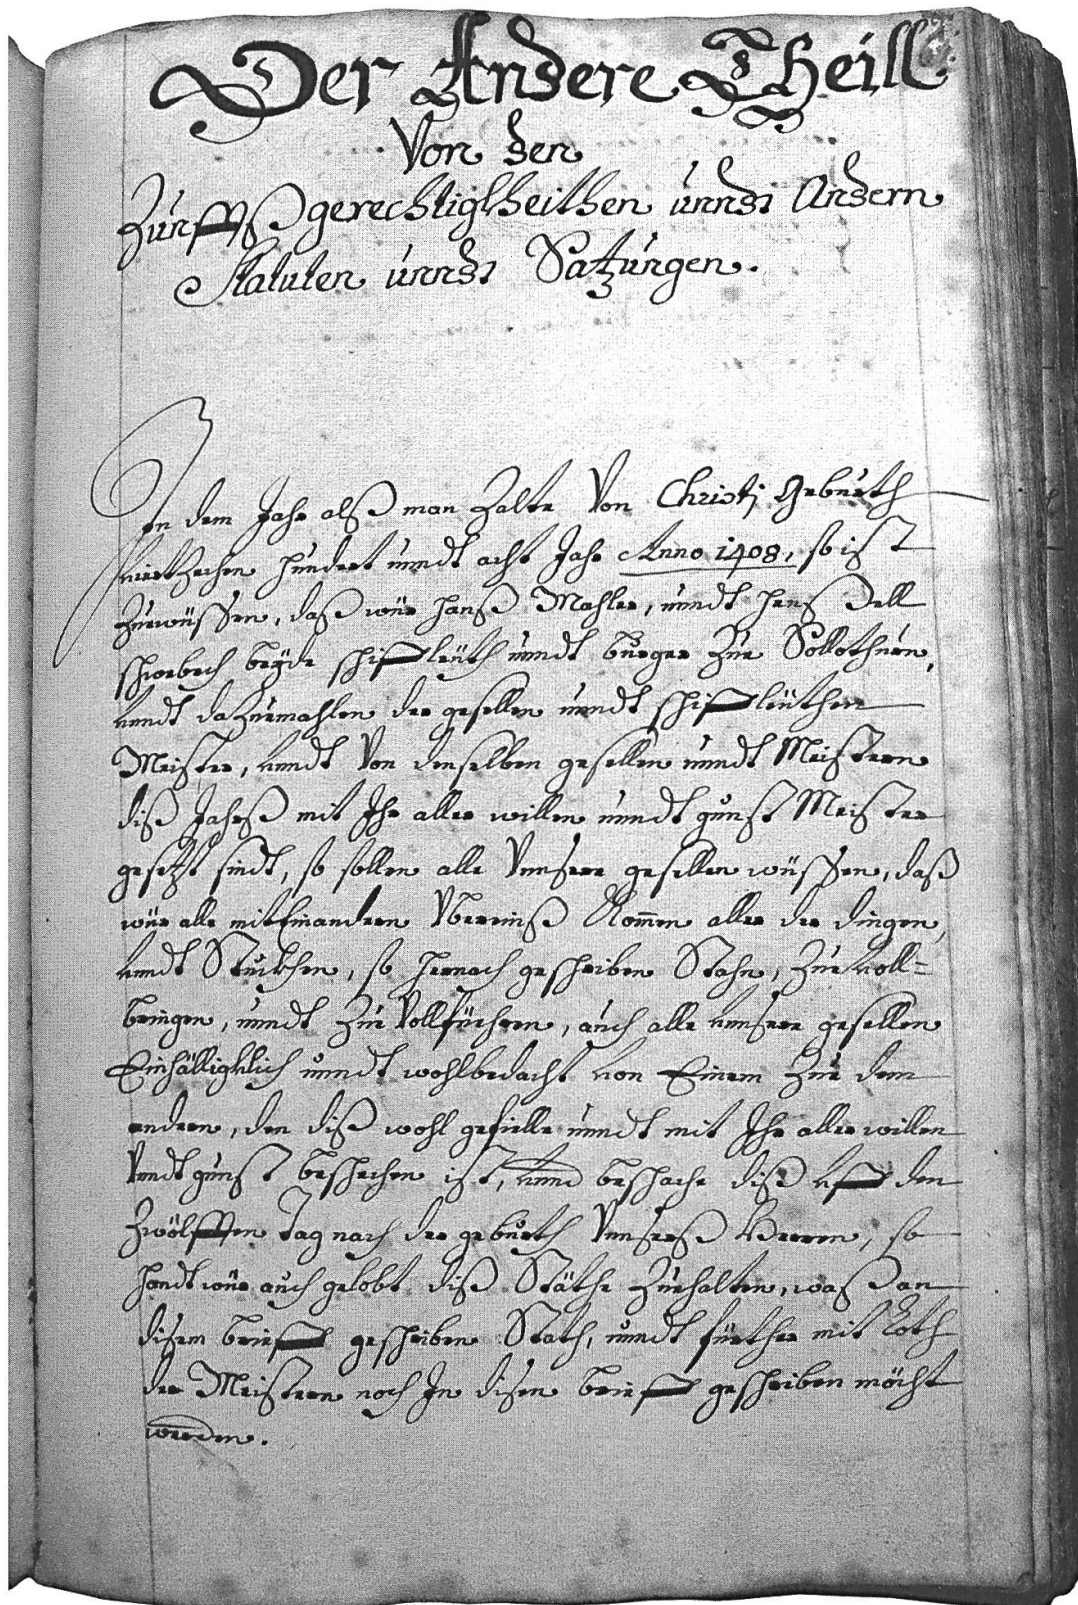 Der Andere Theill
Von den
Zunfftßgerechtigkheithen unndt Andern
Statuten unndt Satzungen.
In dem Jahr alß man Zalte Von Christj Geburth
viertzechen hundert undt acht Jahr Anno 1408, so ist
Zuewüssen, daß wür Hanß Mahler, undt Henß Dell
schwebech beyde schiffleüth undt burger Zue Sollothurn,
vndt dazuemahlen der gesellen undt schiffleüthen
Meister, vndt Von denselben gesellen undt Meistern
diß Jahrß mit Ihr aller willen undt gunst Meister
gesetzt sindt, so sollen alle Vnsere gesellen wüssen, daß
wür alle miteinandern Vbereinß Kommen aller der dingen,
vndt Stuckhen, so hernach geschriben Stahn, Zue voll=
bringen, undt Zue Vollfüehren, auch alle vnsere gesellen
Einhälligklich undt wohlbedacht von Einem Zue dem
andern, den diß wohl gefielle undt mit Ihr aller willen
Vndt gunst beschechen ist, vnnd beschache diß vff den
Zwölfften Tag nach der geburth Vnsereß Herren, so
handt wür auch gelobt diß Stäthe Zuehalten, waß an
disem brieff geschriben Stath, undt fürther mit Rath
der Meistern noch In disen brieff geschriben möcht
werden.